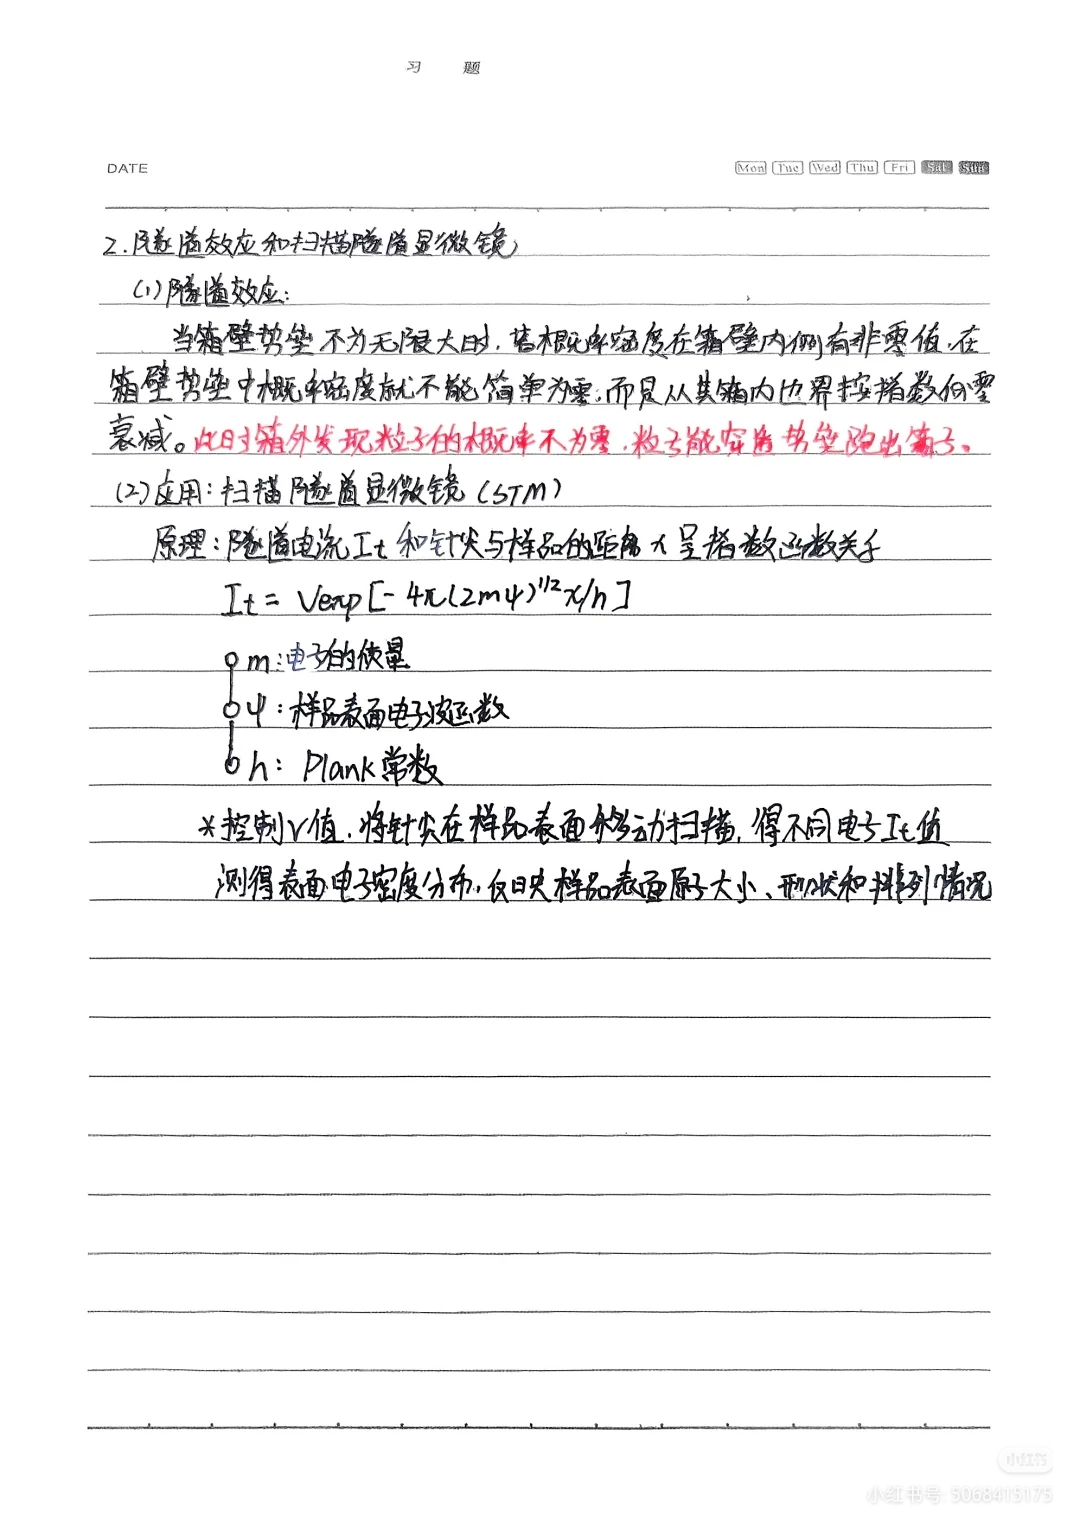 习 题
DATE Mon Tue Wed Thu Fri Sat Sun
2.隧道效应和扫描隧道显微镜
(1)隧道效应:
当箱壁势垒不为无限大时,若概率密度在箱壁内侧有非零值,在
箱壁势垒中概率密度就不能简单为零;而是从其箱内边界按指数向零
衰减。此时箱外发现粒子的概率不为零,粒子能穿透势垒跑出箱子。
(2)应用:扫描隧道显微镜(STM)
原理:隧道电流It和针尖与样品的距离x呈指数函数关子
It = Vexp[-4π(2mψ)^1/2 x/h]
m:电子的质量
ψ:样品表面电子波函数
h: Plank常数
*控制V值,将针尖在样品表面移动扫描,得不同电子It值
测得表面电子密度分布,反映样品表面原子大小、形状和排列情况
小红书
小红书号: 5068415175